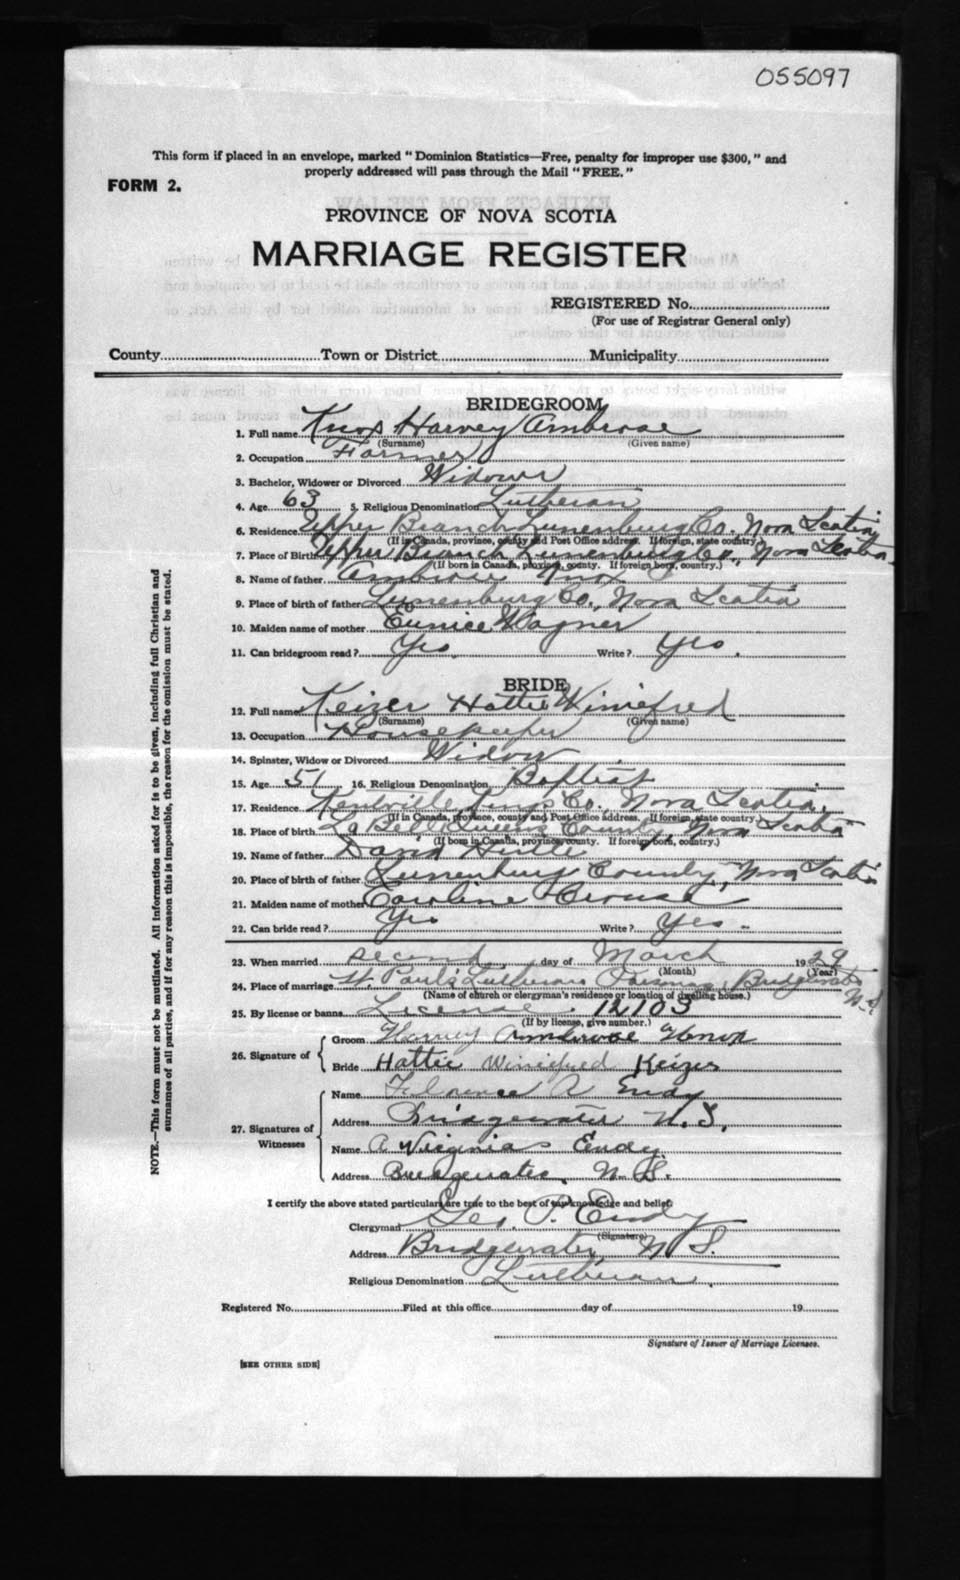 055097
This form if placed in an envelope, marked "Dominion Statistics—Free, penalty for improper use $300," and
properly addressed will pass through the Mail "FREE."
FORM 2.
PROVINCE OF NOVA SCOTIA
MARRIAGE REGISTER
REGISTERED No.
(For use of Registrar General only)
County Town or District Municipality
BRIDEGROOM
1. Full name Knox Harvey Ambrose
(Surname) (Given name)
2. Occupation Farmer
3. Bachelor, Widower or Divorced Widower
4. Age 63 5. Religious Denomination Lutheran
6. Residence Upper Branch Lunenburg Co., Nova Scotia
(If in Canada, province, county and Post Office address. If foreign, state country.)
7. Place of Birth Upper Branch Lunenburg Co., Nova Scotia
(If born in Canada, province, county. If foreign born, country.)
8. Name of father Ambrose Knox
9. Place of birth of father Lunenburg Co., Nova Scotia
10. Maiden name of mother Eunice Wagner
11. Can bridegroom read? Yes. Write? Yes.
BRIDE
12. Full name Keizer Hattie Winiefred
(Surname) (Given name)
13. Occupation Housekeeper
14. Spinster, Widow or Divorced Widow
15. Age 51 16. Religious Denomination Baptist
17. Residence Kentville Kings Co., Nova Scotia.
(If in Canada, province, county and Post Office address. If foreign, state country.)
18. Place of birth La Belle Queens County, Nova Scotia
(If born in Canada, province, county. If foreign born, country.)
19. Name of father David
20. Place of birth of father Lunenburg County, Nova Scotia
21. Maiden name of mother Caroline Crouse
22. Can bride read? Yes Write? Yes
23. When married second day of March 1929
(Month) (Year)
24. Place of marriage St. Paul's Lutheran Parsonage, Bridgewater N.S.
(Name of church or clergyman's residence or location of dwelling house.)
25. By license or banns License 12103
(If by license, give number.)
26. Signature of
Groom Harvey Ambrose Knox
Bride Hattie Winiefred Keizer
27. Signatures of Witnesses
Name Florence A Eudy
Address Bridgewater N.S.
Name A Virginia Eudy.
Address Bridgewater, N.S.
I certify the above stated particulars are true to the best of my knowledge and belief.
Clergyman Geo. P. Eudy
(Signature)
Address Bridgewater, N.S.
Religious Denomination Lutheran.
Registered No. Filed at this office day of 19
Signature of Issuer of Marriage Licenses.
[SEE OTHER SIDE]
NOTE.—This form must not be mutilated. All information asked for is to be given, including full Christian and
surnames of all parties, and if for any reason this is impossible, the reason for the omission must be stated.